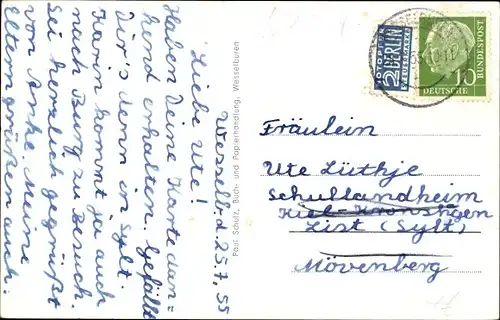 Wesselb. d. 25.7.55
Liebe Ute!
Haben Deine Karte dan-
kend erhalten. Gefällt
Dir's denn in Sylt.
Karin kommt ja auch
nach Burg zu Besuch.
Sei herzlich gegrüßt
von Anke. Meine
Eltern grüßen auch.
Paul Schulz, Buch- und Papierhandlung, Wesselburen
NOTOPFER
2 BERLIN
STEUERMARKE
10
DEUTSCHE
BUNDESPOST
Fräulein
Ute Lüthje
Schullandheim
Kiel-Kronshagen
List (Sylt)
Mövenberg